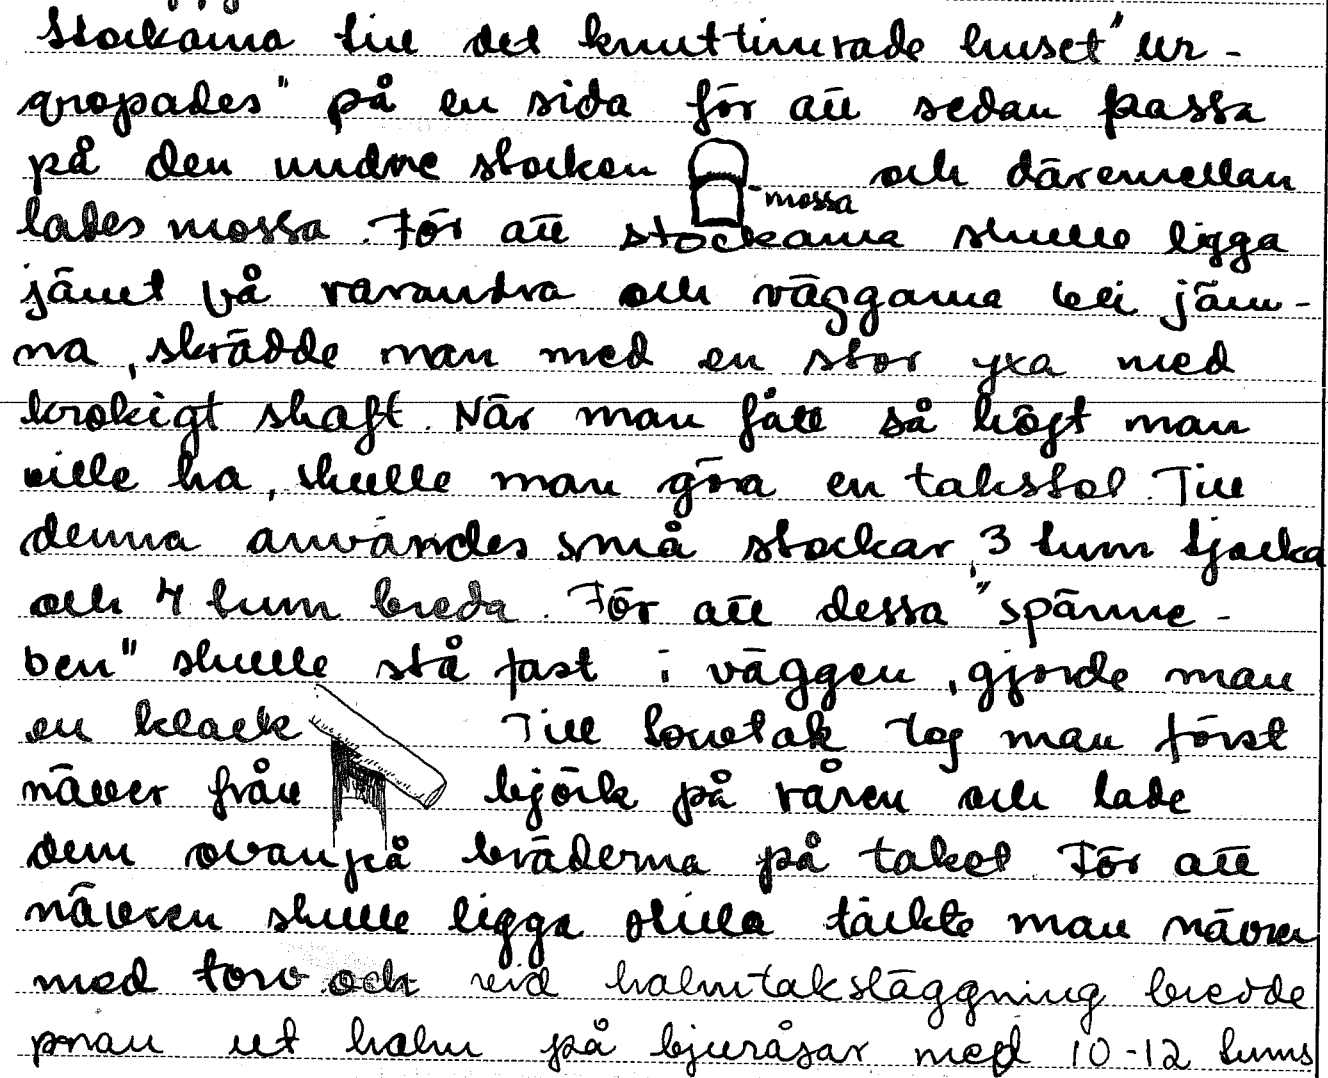 stockarna till det knuttimrade huset "ur-
gropades" på en sida för att sedan passa
på den undre stocken och däremellan
mossa
lades mossa. För att stockarna skulle ligga
jämt på varandra och väggarna bli jäm-
na, skrädde man med en stor yxa med
krokigt skaft. När man fått så högt man
ville ha, skulle man göra en takstol. Till
denna användes små stockar, 3 tum tjocka
och 4 tum breda. För att dessa "spänne-
ben" skulle stå fast i väggen, gjorde man
en klack Till torvtak tog man först
näver från björk på våren och lade
dem ovanpå bräderna på taket. För att
nävren skulle ligga stilla täckte man nävren
med torv och vid halmtaksläggning bredde
man ut halm på bjuråsar med 10-12 tums